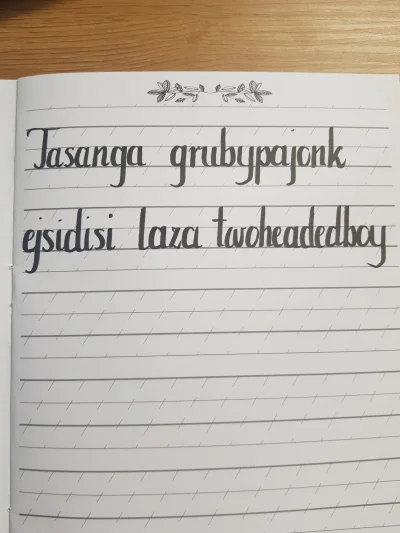 Jasanga grubypajonk
ejsidisi laza twoheadedboy